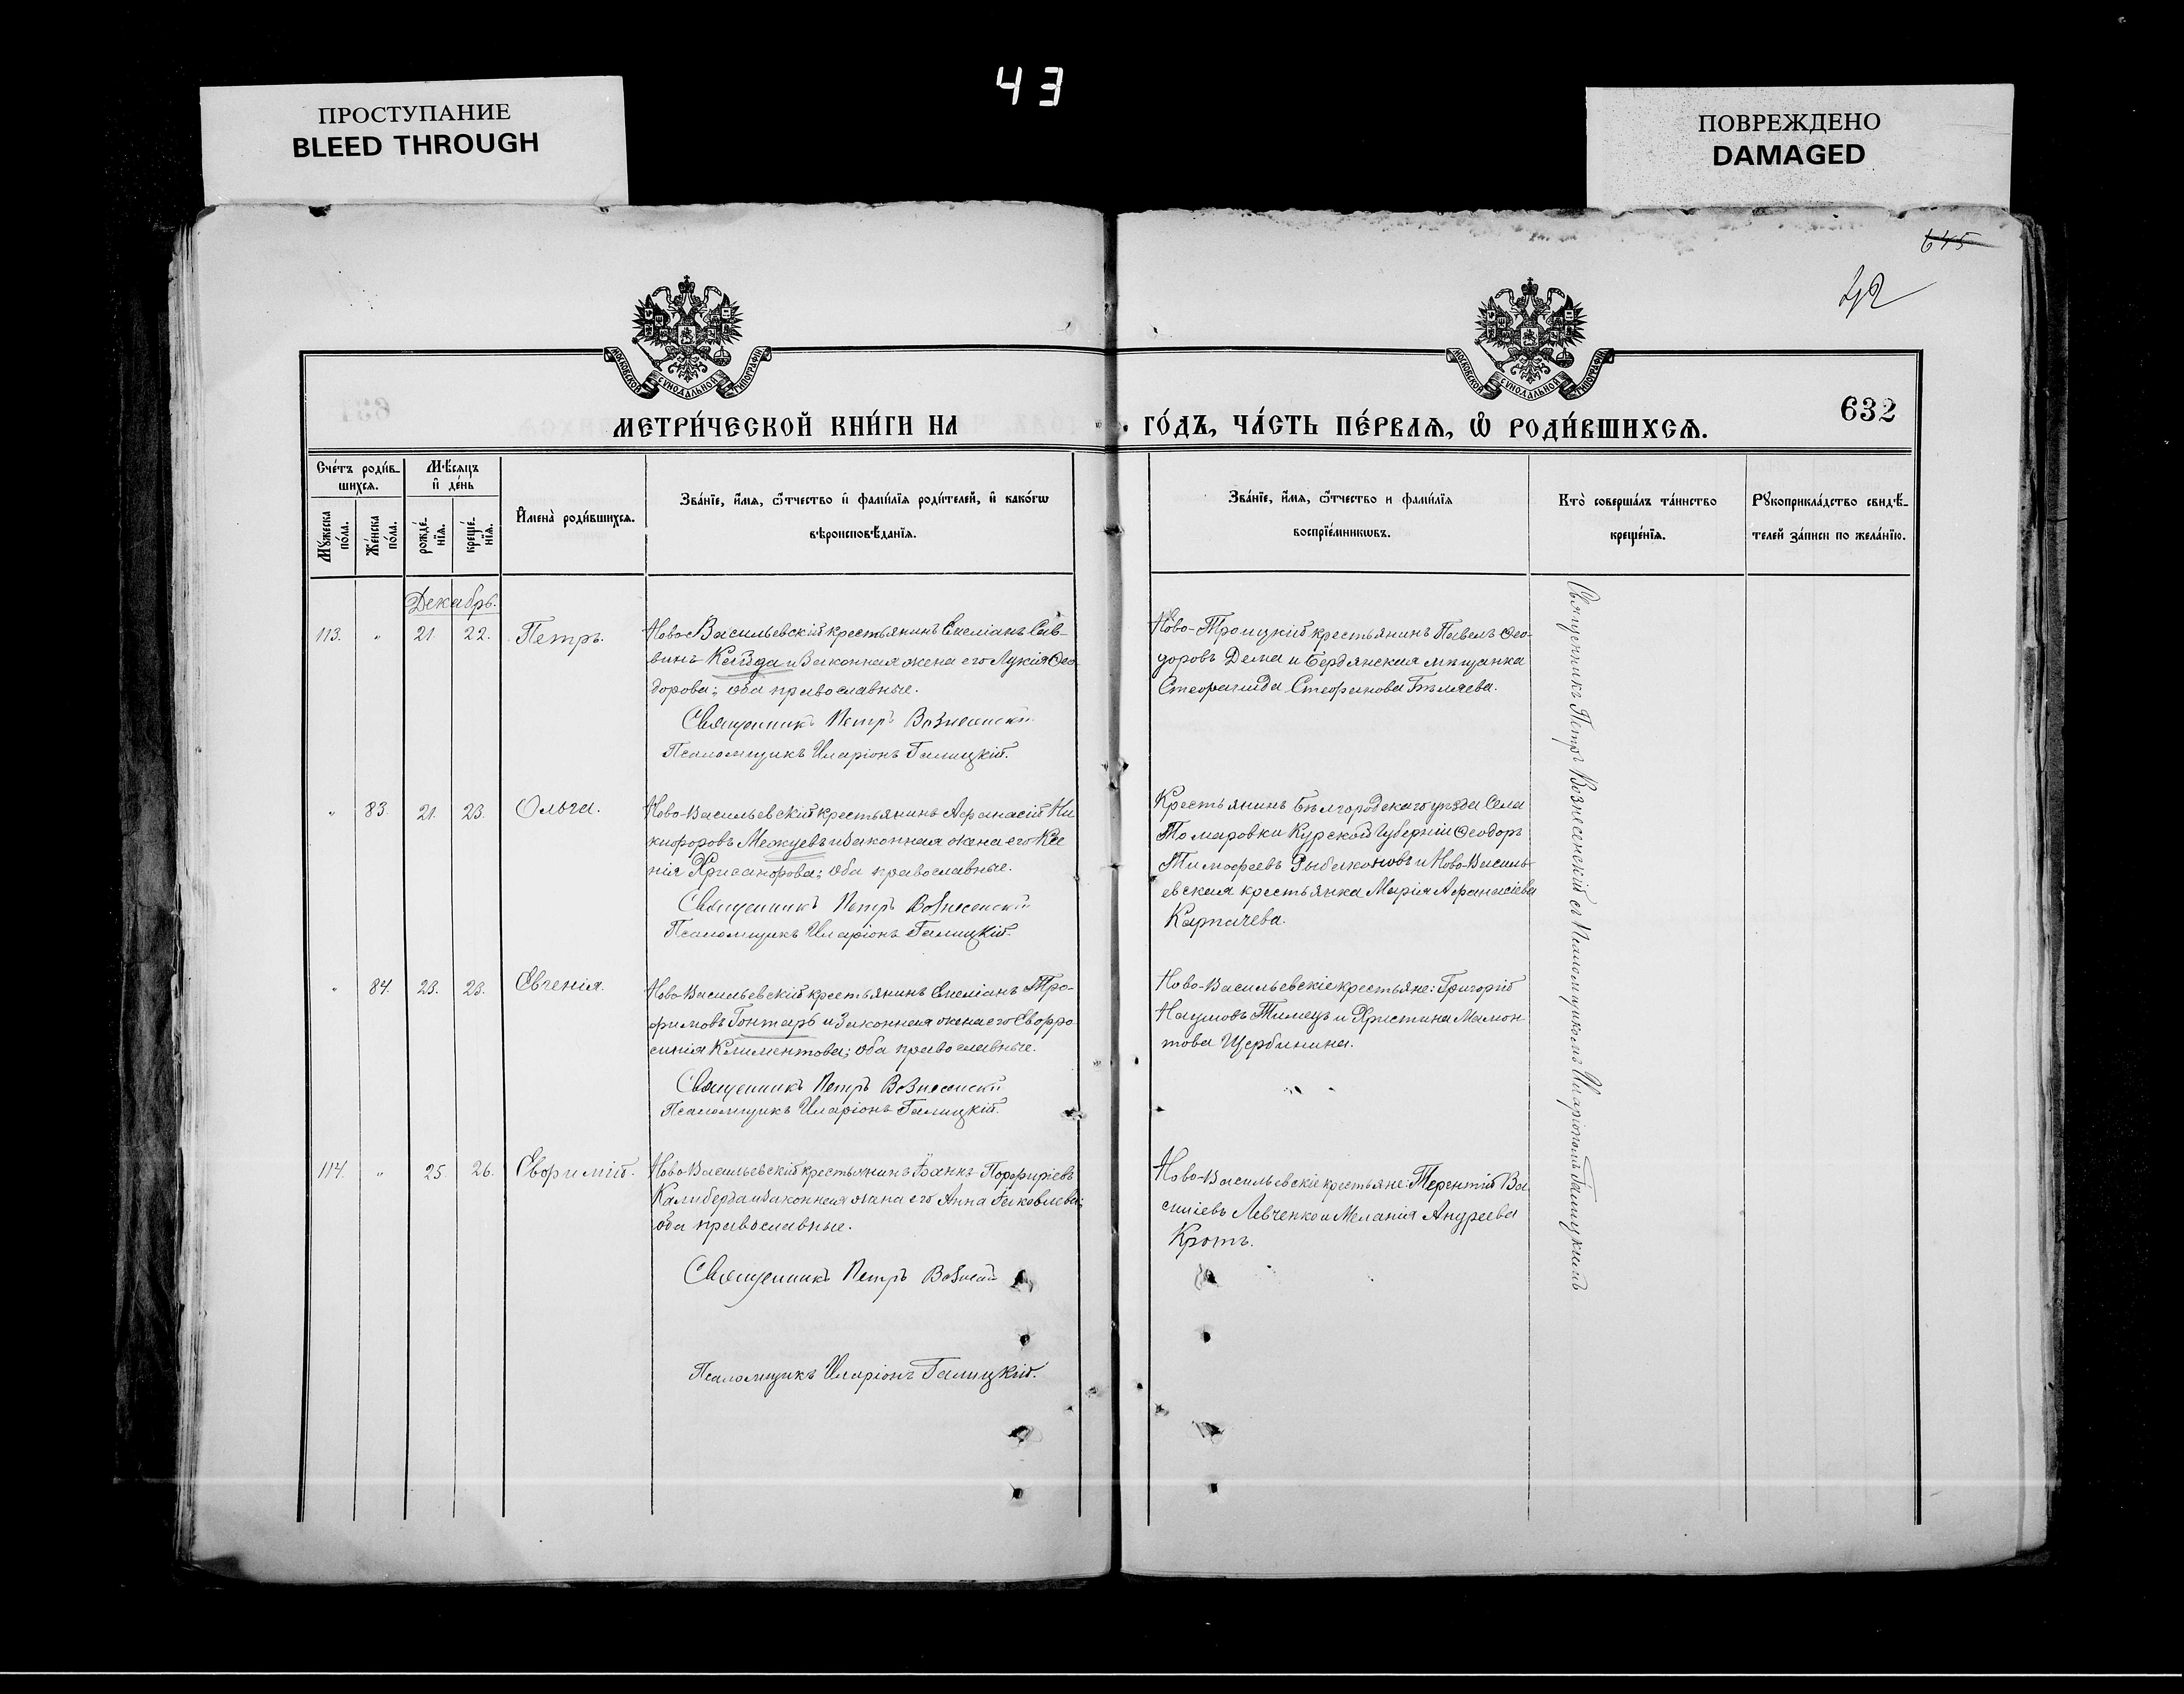 43
ПРОСТУПАНИЕ
BLEED THROUGH
ПОВРЕЖДЕНО
DAMAGED
645
42
МОСКОВСКОЙ СѴНОДАЛЬНОЙ ТИПОГРАФІИ
МОСКОВСКОЙ СѴНОДАЛЬНОЙ ТИПОГРАФІИ
632
МЕТРИ́ЧЕСКОЙ КНИ́ГИ НА
ГО́ДЪ, ЧА́СТЬ ПЕ́РВАѦ, Ѡ РОДИ́ВШИХСѦ.
Сче́тъ роди́в-
шихсѧ.
Мѣ́сѧцъ
и҆ де́нь
Мꙋ́жеска по́ла.
Же́нска по́ла.
рожде́-
нїѧ.
креще́-
нїѧ.
И҆мена̀ роди́вшихсѧ.
Зва́нїе, и҆́мѧ, ѻ҆́тчество и҆ фами́лїѧ роди́телей, и҆ како́гѡ
вѣроисповѣ́данїѧ.
Зва́нїе, и҆́мѧ, ѻ҆́тчество и фами́лїѧ
воспрїе́мникѡвъ.
Кто̀ соверша́лъ та́инство
креще́нїѧ.
Рꙋкоприкла́дство свидѣ́-
телей за́писи по жела́нїю.
Декабрь.
113. " 21. 22. Петръ.
Ново-Васильевскій крестьянинъ Емеліанъ Сав-
винъ Кайда и законная жена его Лукія Ѳео-
дорова; оба православные.
Священникъ Петръ Вознесенскій
Псаломщикъ Иларіонъ Галицкій.
Ново-Троицкій крестьянинъ Павелъ Ѳео-
доровъ Дема и Бердянская мѣщанка
Стефанида Стефанова Бѣляева.
" 83. 21. 23. Ольга.
Ново-Васильевскій крестьянинъ Афанасій Ни
кифоровъ Межуевъ и законная жена его Ксе
нія Хрисанфова; оба православные.
Священникъ Петръ Вознесенскій
Псаломщикъ Иларіонъ Галицкій.
Крестьянинъ Бѣлгородскаго уѣзда Села
Томаровки Курской Губерніи Ѳеодоръ
Тимофеевъ Рыбалконовъ и Ново-Василь-
евская крестьянка Марія Афанасіева
Карпачева.
" 84. 23. 23. Евгенія.
Ново-Васильевскій крестьянинъ Емеліанъ Тро-
фимовъ Гонтарь и законная жена его Евфро
синія Климентова; оба православные.
Священникъ Петръ Вознесенскій
Псаломщикъ Иларіонъ Галицкій.
Ново-Васильевскіе крестьяне: Григорій
Наумовъ Тимецъ и Христина Мамон
това Щербинина.
114. " 25. 26. Евфимій.
Ново-Васильевскій крестьянинъ Іоаннъ Порфиріевъ
Калиберда и законная жена его Анна Іаковлева;
оба православные.
Священникъ Петръ
Псаломщикъ Иларіонъ Галицкій.
Ново-Васильевскіе крестьяне: Терентій Ва
силіевъ Левченко и Меланія Андреева
Кротъ.
Священникъ Петръ Вознесенскій съ Псаломщикомъ Иларіономъ Галицкимъ